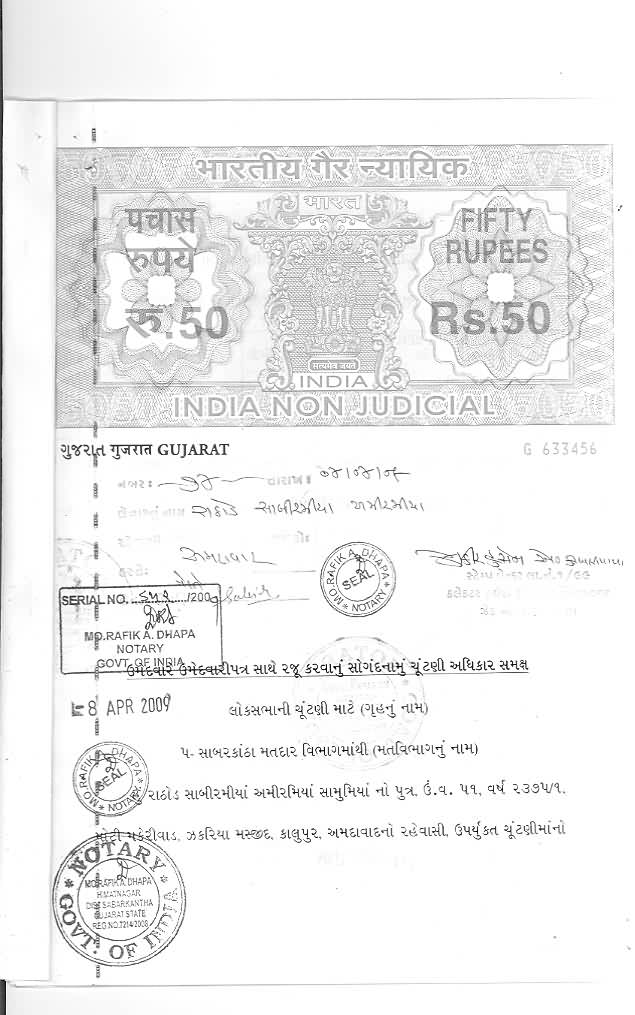 भारतीय गैर न्यायिक
भारत
पचास
रुपये
रु.50
FIFTY
RUPEES
Rs.50
सत्यमेव जयते
INDIA
INDIA NON JUDICIAL
ગુજરાત गुजरात GUJARAT
G 633456
નંબરઃ તારીખઃ
રાઠોડ સાબીરમીયા અમીરમીયા
અમદાવાદ
SERIAL NO. ૬૫૨ /200
MO.RAFIK A. DHAPA
NOTARY
GOVT. OF INDIA
MO.RAFIK A. DHAPA
SEAL
NOTARY
ઉમેદવારે ઉમેદવારીપત્ર સાથે રજૂ કરવાનું સોગંદનામું ચૂંટણી અધિકાર સમક્ષ
8 APR 2009
લોકસભાની ચૂંટણી માટે (ગૃહનું નામ)
૫- સાબરકાંઠા મતદાર વિભાગમાંથી (મતવિભાગનું નામ)
MO.RAFIK A. DHAPA
SEAL
NOTARY
રાઠોડ સાબીરમીયાં અમીરમિયાં સામુમિયાં નો પુત્ર, ઉં.વ. ૫૧, વર્ષ ૨૩૭૫/૧,
મોટી મકેરીવાડ, ઝકરિયા મસ્જીદ, કાલુપુર, અમદાવાદનો રહેવાસી, ઉપર્યુકત ચૂંટણીમાંનો
NOTARY
MO.RAFIK A. DHAPA
HIMATNAGAR
DIST. SABARKANTHA
GUJARAT STATE
REG.NO.7214/2008
GOVT. OF INDIA